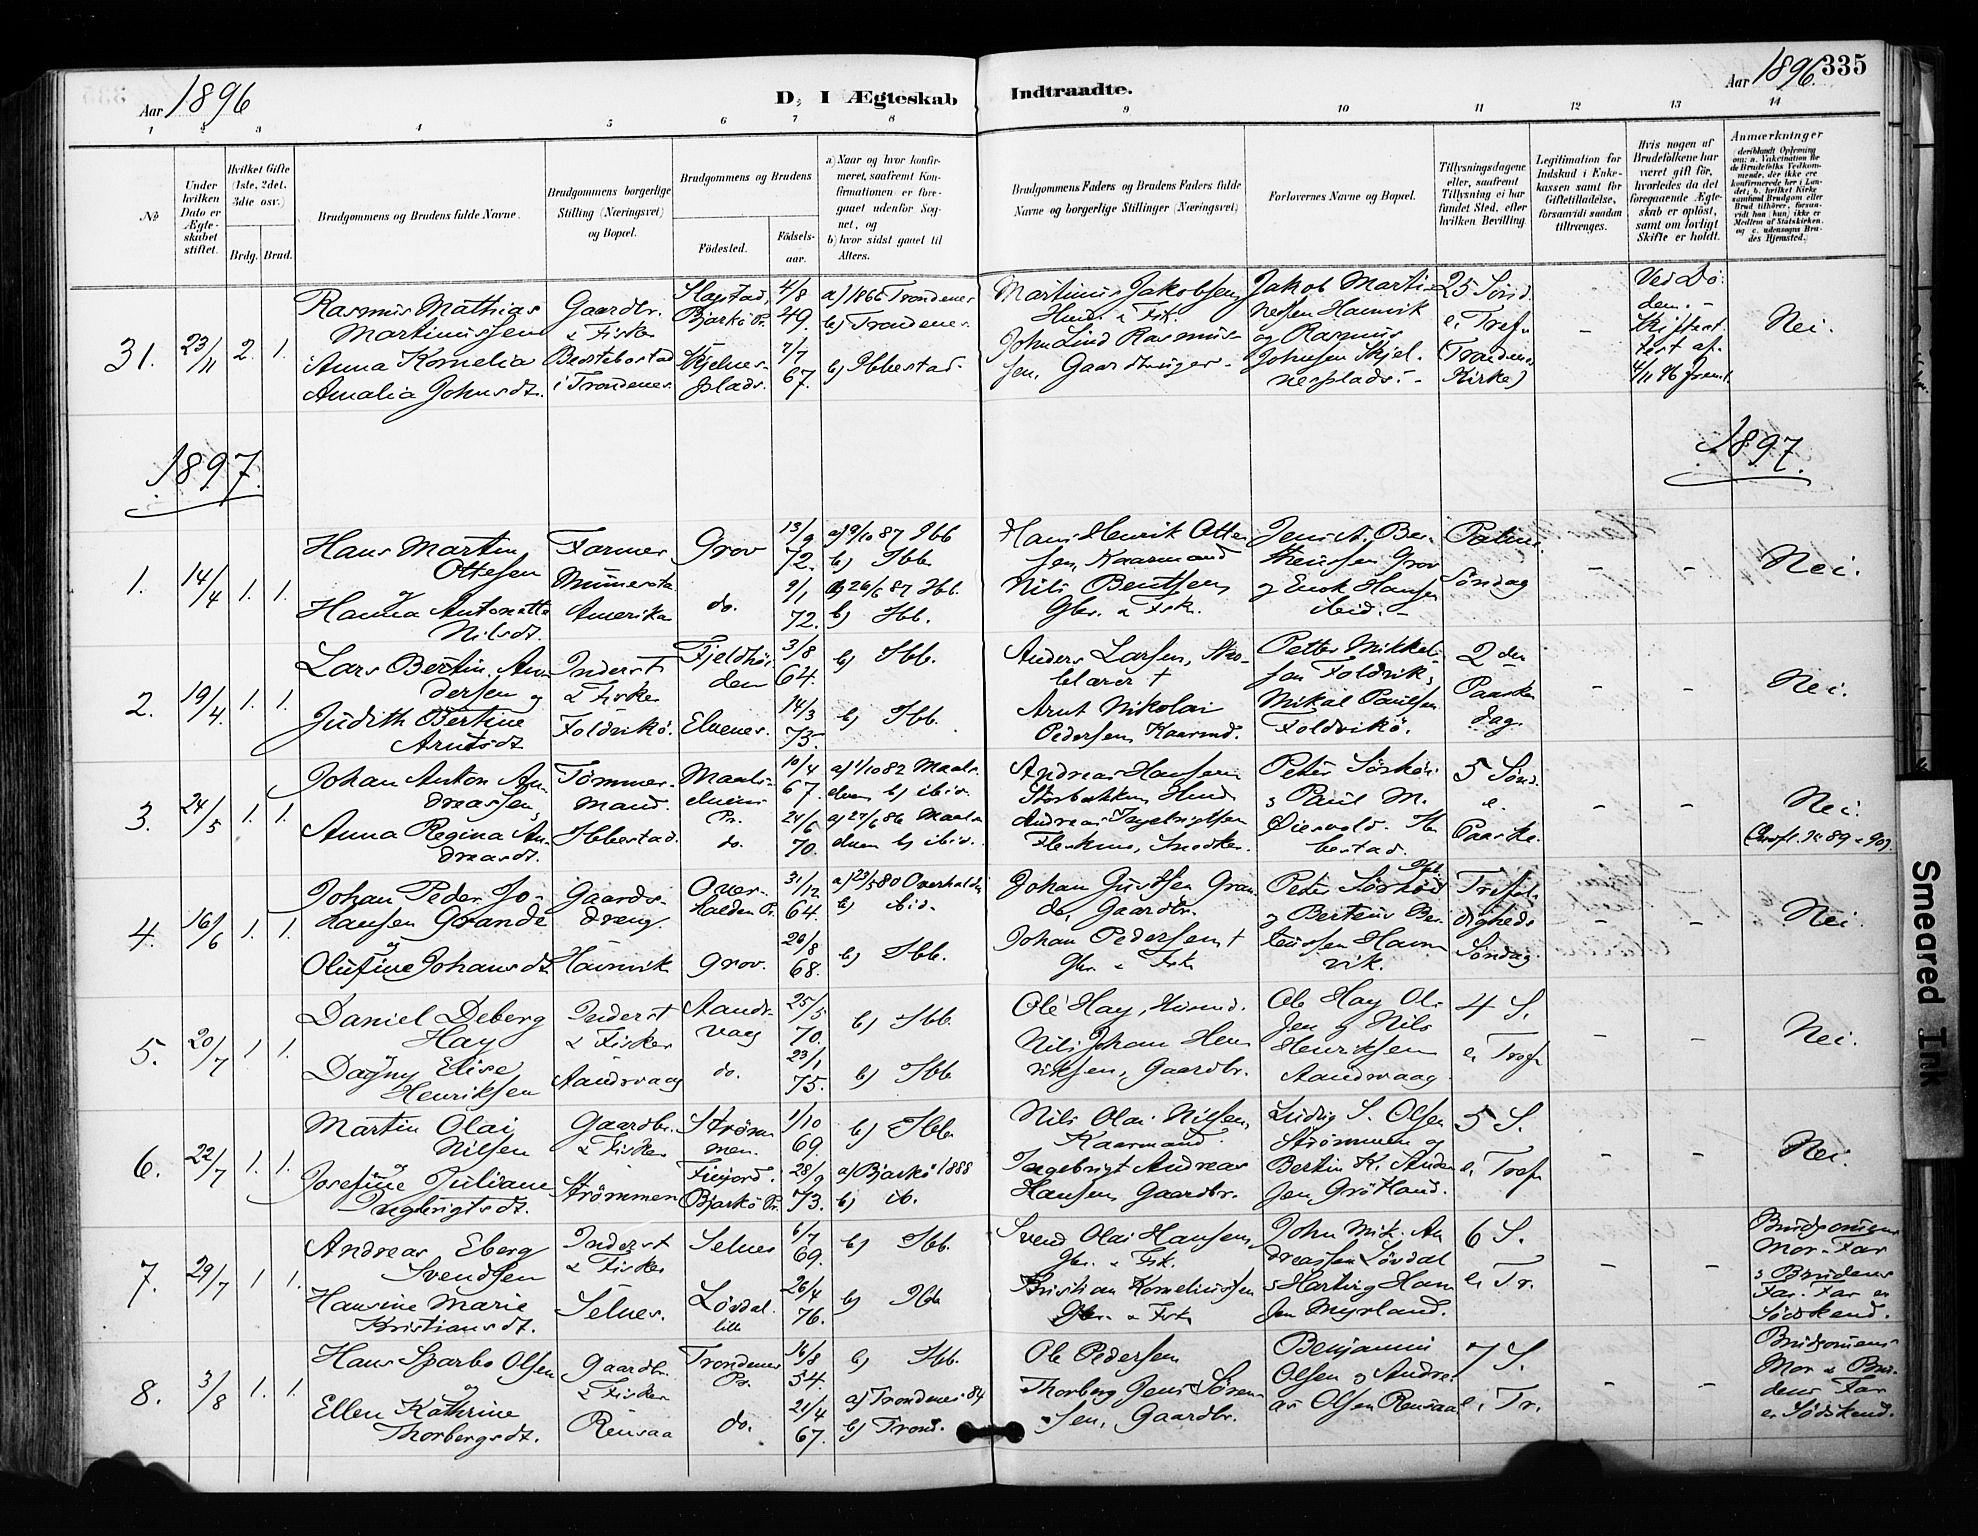 Aar 1896
D. I Ægteskab Indtraadte.
Aar 1896. 335
1 2 3 4 5 6 7 8 9 10 11 12 13 14
No
Under hvilken Dato er Ægteskabet stiftet.
Hvilket Gifte (1ste, 2det, 3die osv.)
Brdg. Brud.
Brudgommens og Brudens fulde Navne.
Brudgommens borgerlige Stilling (Næringsvei) og Bopæl.
Brudgommens og Brudens
Fødested.
Fødselsaar.
a) Naar og hvor konfirmeret, saafremt Konfirmationen er foregaaet udenfor Sognet, og
b) hvor sidst gaaet til Alters.
Brudgommens Faders og Brudens Faders fulde Navne og borgerlige Stillinger (Næringsvei)
Forlovernes Navne og Bopæl.
Tillysningsdagene eller, saafremt Tillysning ei har fundet Sted, efter hvilken Bevilling
Legitimation for Indskud i Enkekassen samt for Giftetilladelse, forsaavidt saadan tiltrænges.
Hvis nogen af Brudefolkene har været gift før, hvorledes da det foregaaende Ægteskab er opløst, samt om lovligt Skifte er holdt.
Anmærkninger (deriblandt Oplysning om: a. Vakcination for de Brudefolks Vedkommende, der ikke ere konfirmerede her i Landet; b. hvilket Kirkesamfund Brudgom eller Brud tilhører, forsaavidt han (hun) ikke er Medlem af Statskirken, og c. udensogns Brudes Hjemsted.)
31. 23/11 2. 1.
Rasmus Mathias
Martinussen
Anna Kornelia
Amalia Johnsdt.
Gaardbr.
& Fisker
i Trondenes.
Bjarkö Pr.
Skjelnes-
plads.
4/8
49.
7/7
67.
a) 1866 Trondenes
b) Trondenes.
b) Ibbestad.
Martinus Jakobsen,
John Lind Rasmus-
sen, Gaardbruger.
Jakob Marti-
nussen Hamvik
og Rasmus
Johnsen Skjel-
nesplads.
25 Sönd.
e. Tref.
(Trondenes
Kirke)
-
Ved Dö-
den.
Skifteat-
test af
4/11 96 fremt.
Nei.
1897.
1897.
1. 14/4 1. 1.
Hans Martin
Ottesen
og
Hanna Antonette
Nilsdt.
Farmer
Minnesota
Amerika
Grov
do.
13/9
72.
9/1
72.
a) 9/10 87 Ibb
b) Ibb
a) 26/6 87 Ibb.
b) Ibb.
Hans Henrik Otte-
sen, Kaarmand
Nils Bentsen
Gbr. & Fisk.
Jens A. Ber-
theussen Grov
og Enok Hansen
ibid.
Palme
Söndag
-
-
Nei.
2. 19/4. 1. 1.
Lars Bertin An-
dersen og
Judith Bertine
Arntsdt
Inderst
& Fisker
Foldvikö.
Elvenes.
3/8
64.
14/3
75.
b) Ibb.
b) Ibb.
Anders Larsen, Sko-
lelærer †
Arnt Nikolai
Pedersen Kaarmd.
Petter Mikkel-
sen Foldvik,
Mikal Paulsen
Foldvikö.
2 den
Paaske
dag.
-
-
Nei.
3. 24/5 1. 1.
Johan Anton An-
dreassen,
Anna Regina An-
dreasdt.
Tömmer-
mand.
Ibbestad.
Maals-
elvens
Pr.
do.
10/4
67.
24/6
70.
a) 1/10 82 Maals-
elven b) ibid.
a) 27/6 86 Maals-
elven b) ibid.
Andreas Hansen
Storbakken Husd
Andreas Ingebrigtsen
Fleskmo, Smedker.
Peter Sörhöi
& Paul M.
Öiesvold. Ib-
bestad.
5 Sönd.
e.
Paaske.
-
-
Nei.
4. 16/6 1. 1.
Johan Peder Jo-
hansen Grande
og
Olufine Johansdt.
Gaards-
dreng.
Hamnvik
Over-
halden Pr.
Grov.
31/12
64.
26/8
68.
a) 23/5 80 Overhalden
b) ibid.
b) Ibb.
Johan Gustsen Gran-
de, Gaardbr.
Johan Pedersen †
Gbr. & Fisk
Peter Sörhöi Ibb
og Berteus Ber-
teussen Hamn-
vik.
Trefol-
digheds
Söndag.
-
-
Nei.
5. 20/7 1. 1.
Daniel Deberg
Hay
og
Dagny Elise
Henriksen
Inderst
& Fisker
Aandsvaag
Aands-
vaag
do.
25/5
70.
23/1
75.
b) Ibb
b) Ibb
Ole Hay, Husmd.
Nils Johan Hen-
riksen, Gaardbr.
Ole Hay Ol-
sen og Nils
Henriksen
Aandsvaag.
4 S.
e. Tref
-
-
Nei.
6. 22/7 1. 1.
Martin Olai
Nilsen
og
Josefine Juliane
Ingbrigtsdt.
Gaardbr.
& Fisker
Strömmen
Ström-
men.
Bjarkö Pr.
1/10
69.
28/9
73.
b) Ibb
a) Bjarkö 1888
b) ib.
Nils Olai Nilsen,
Kaarmand.
Ingebrigt Andreas
Hansen, Gaardbr.
Ludig S. Olsen
Strömmen og
Bertin K. Ander-
sen, Grötland.
5 S.
e. Tref
-
-
Nei.
7. 29/7 1 1.
Andreas Eberg
Svendsen
Hansine Marie
Kristiansdt.
Inderst
& Fisker
Selnes.
Selnes
Lövdal.
lille
6/7
69.
26/4
76.
b) Ibb.
b) Ibb
Svend Olai Hansen,
Gbr. & Fisk.
Kristian Korneliussen
Gbr. & Fisk
John Mik. An-
dreassen Lövdal
& Hartvig Han-
sen Myrland.
6 S.
e. Tr.
-
-
Brudgommens
Mor-Far
& Brudens
Far-Far er
Södskend.
8. 3/8 1. 1.
Hans Sparbo Olsen
og
Ellen Kathrine
Thorbergsdt.
Gaardbr.
& Fisker
Rensaa
Trondenes
Pr.
do.
16/8
54.
21/4
67.
b) Ibb.
a) Trondenes 84
b) Trond.
Ole Pedersen
Thorberg Jens Sören-
sen, Gaardbr.
Benjamin
Olsen og Andre-
as Olsen Rensaa
7 S.
e. Tr.
-
-
Brudgommens
Mor & Bru-
dens Far
er Södskend.
Smeared Ink